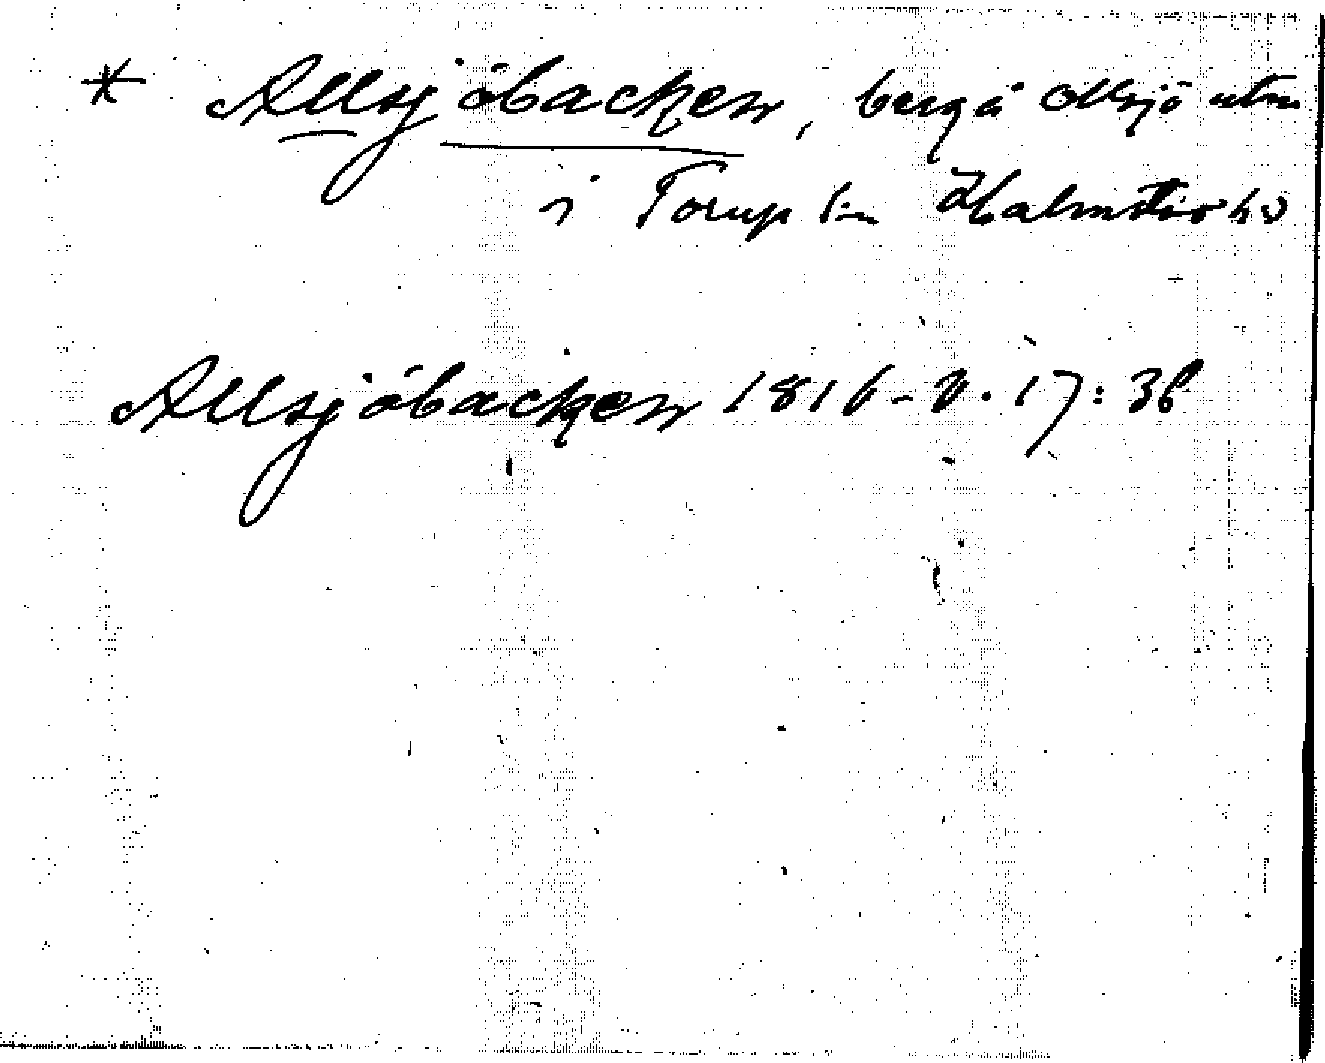 * Allsjöbacken, berg å Allsjö utm
i Torup sn Halmstads hd
Allsjöbacken 1816 - 2. 17: 38